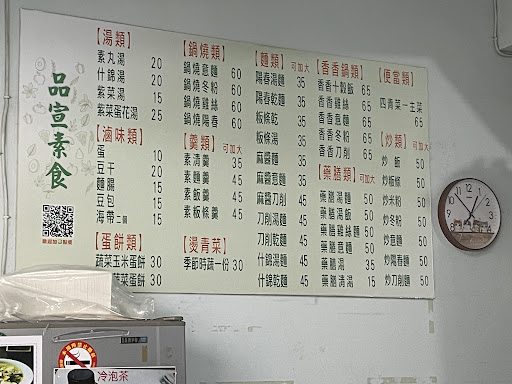 品宣素食
【湯類】
素丸湯 20
什錦湯 20
紫菜湯 15
紫菜蛋花湯 25
【滷味類】
蛋 10
豆干 20
麵腸 20
豆包 20
海帶二個 15
【蛋餅類】
蔬菜玉米蛋餅 30
蔬菜蛋餅 30
【鍋燒類】
鍋燒意麵 60
鍋燒冬粉 60
鍋燒雞絲 60
鍋燒陽春 60
【羹類】可加大
素清羹 35
素麵羹 45
素飯羹 45
素板條羹 45
【燙青菜】
季節時蔬一份 30
【麵類】可加大
陽春湯麵 35
陽春乾麵 35
板條乾 35
板條湯 35
麻醬麵 35
麻醬意麵 35
麻醬刀削 45
刀削湯麵 45
刀削乾麵 45
什錦湯麵 45
什錦乾麵 45
【香香鍋類】
香香十穀飯 65
香香雞絲 65
香香意麵 65
香香冬粉 65
香香刀削 65
【藥膳類】可加大
藥膳湯麵 50
藥膳湯飯 50
藥膳雞麵 50
藥膳意麵 50
藥膳湯 35
藥膳清湯 15
【便當類】
四青菜一主菜
65
【炒類】可加大
炒飯 50
炒板條 50
炒雞絲 50
炒冬粉 50
炒意麵 50
炒陽春麵 50
炒刀削麵 50
冷泡茶